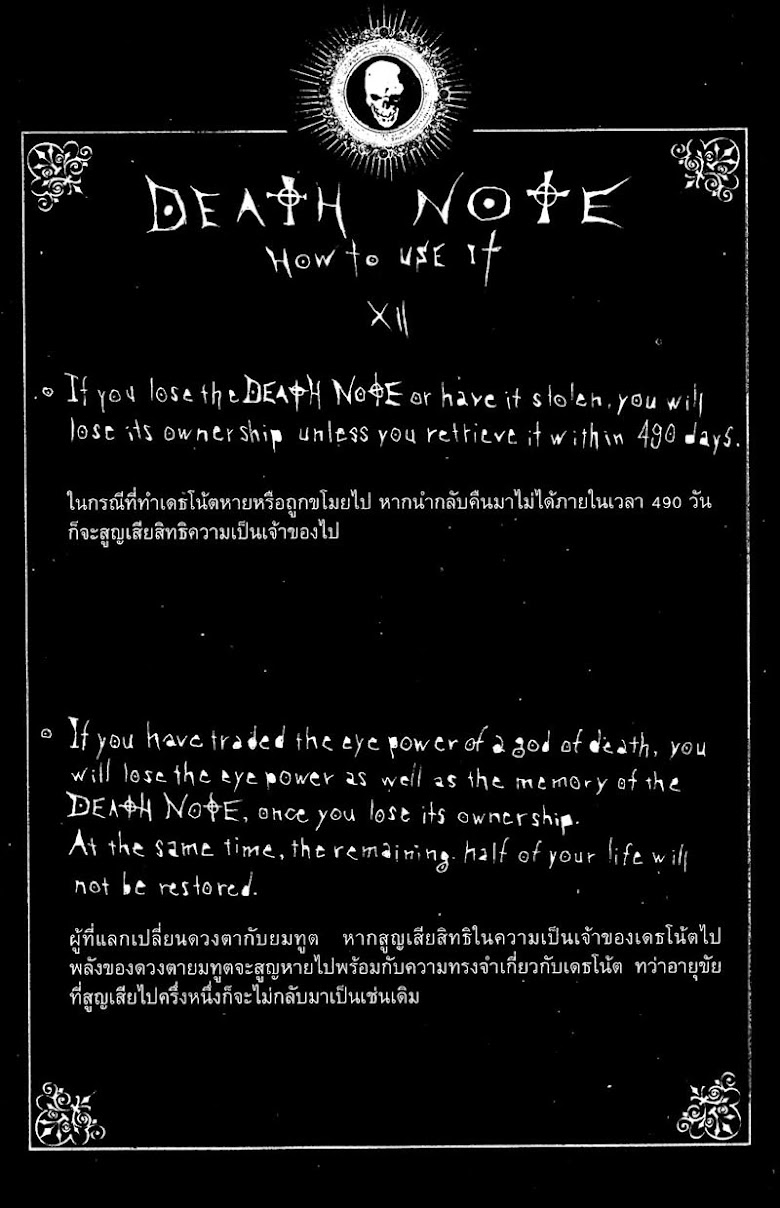 DEATH NOTE
HOW to USE It
XII
If you lose the DEATH NOTE or have it stolen, you will
lose its ownership unless you retrieve it within 490 days.
ในกรณีที่ทำเดธโน้ตหายหรือถูกขโมยไป หากนำกลับคืนมาไม่ได้ภายในเวลา 490 วัน
ก็จะสูญเสียสิทธิความเป็นเจ้าของไป
If you have traded the eye power of a god of death, you
will lose the eye power as well as the memory of the
DEATH NOTE, once you lose its ownership.
At the same time, the remaining half of your life will
not be restored.
ผู้ที่แลกเปลี่ยนดวงตากับยมทูต หากสูญเสียสิทธิในความเป็นเจ้าของเดธโน้ตไป
พลังของดวงตายมทูตจะสูญหายไปพร้อมกับความทรงจำเกี่ยวกับเดธโน้ต ทว่าอายุขัย
ที่สูญเสียไปครึ่งหนึ่งก็จะไม่กลับมาเป็นเช่นเดิม